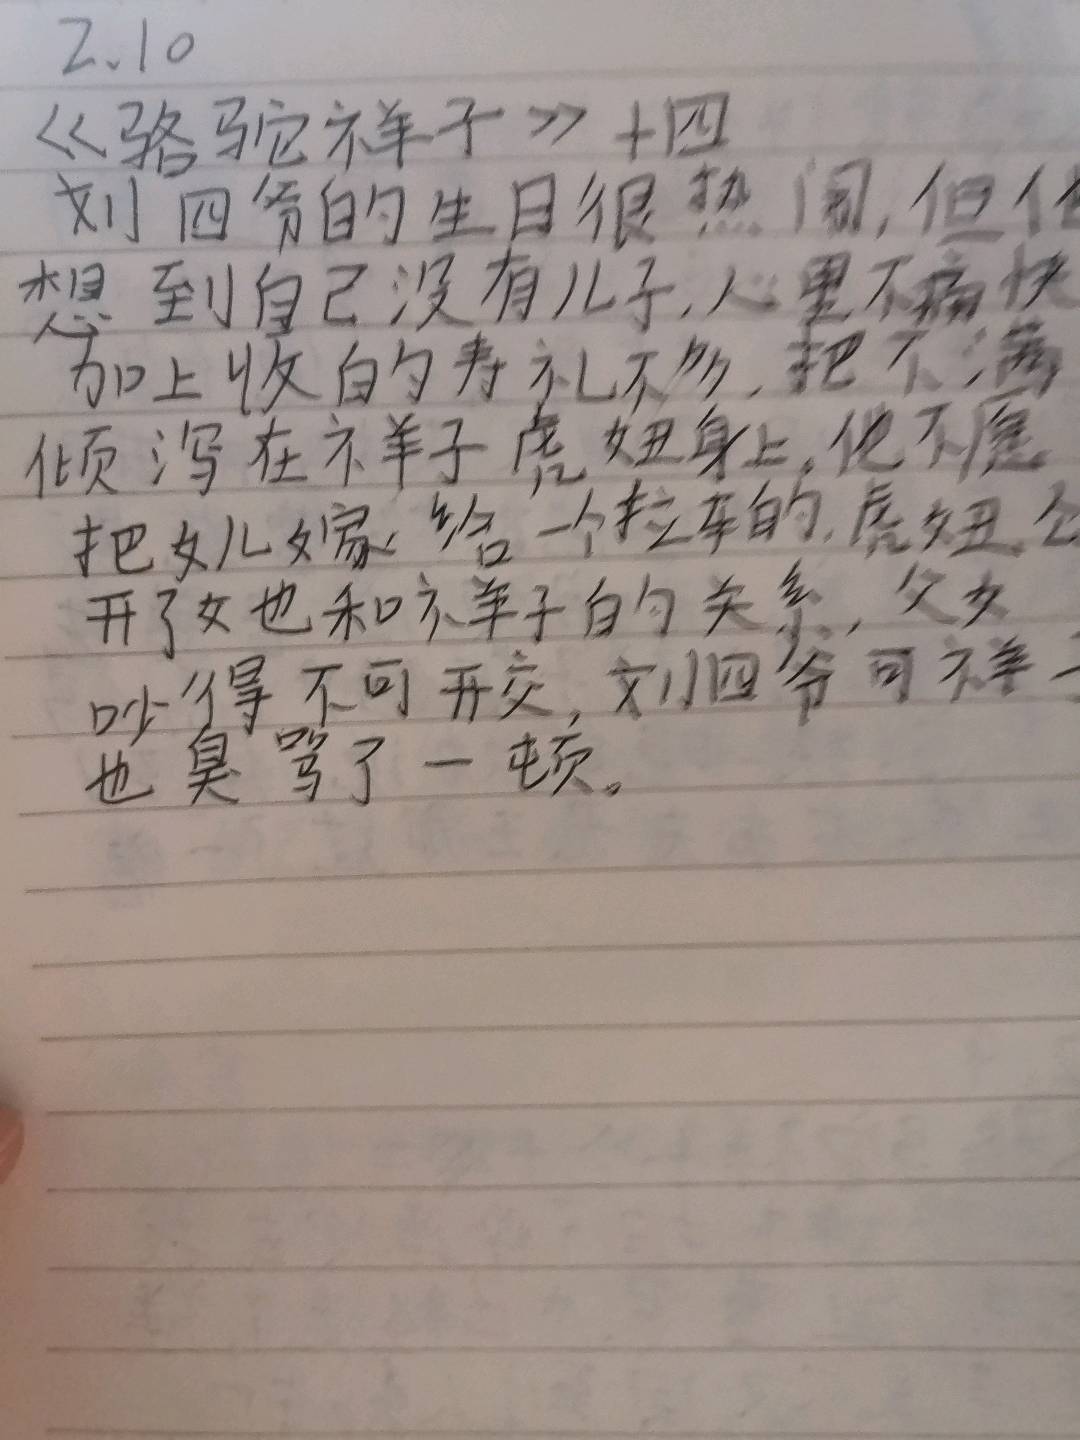 2.10
《骆驼祥子》十四
刘四爷的生日很热闹,但他
想到自己没有儿子,心里不痛快
加上收的寿礼不多,把不满
倾泻在祥子虎妞身上,他不愿
把女儿嫁给一个拉车的,虎妞公
开了她和祥子的关系,父女
吵得不可开交,刘四爷可祥子
也臭骂了一顿。